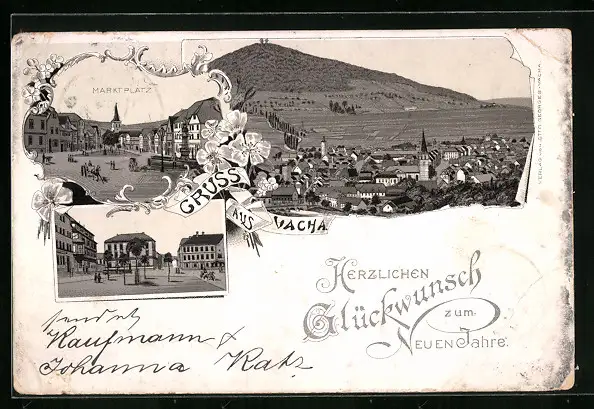 MARKTPLATZ
GRUSS
AUS
VACHA
VERLAG VON OTTO GEORGES-VACHA.
HERZLICHEN
Glückwunsch
zum
NEUEN Jahre.
sendet
Kaufmann &
Johanna Katz